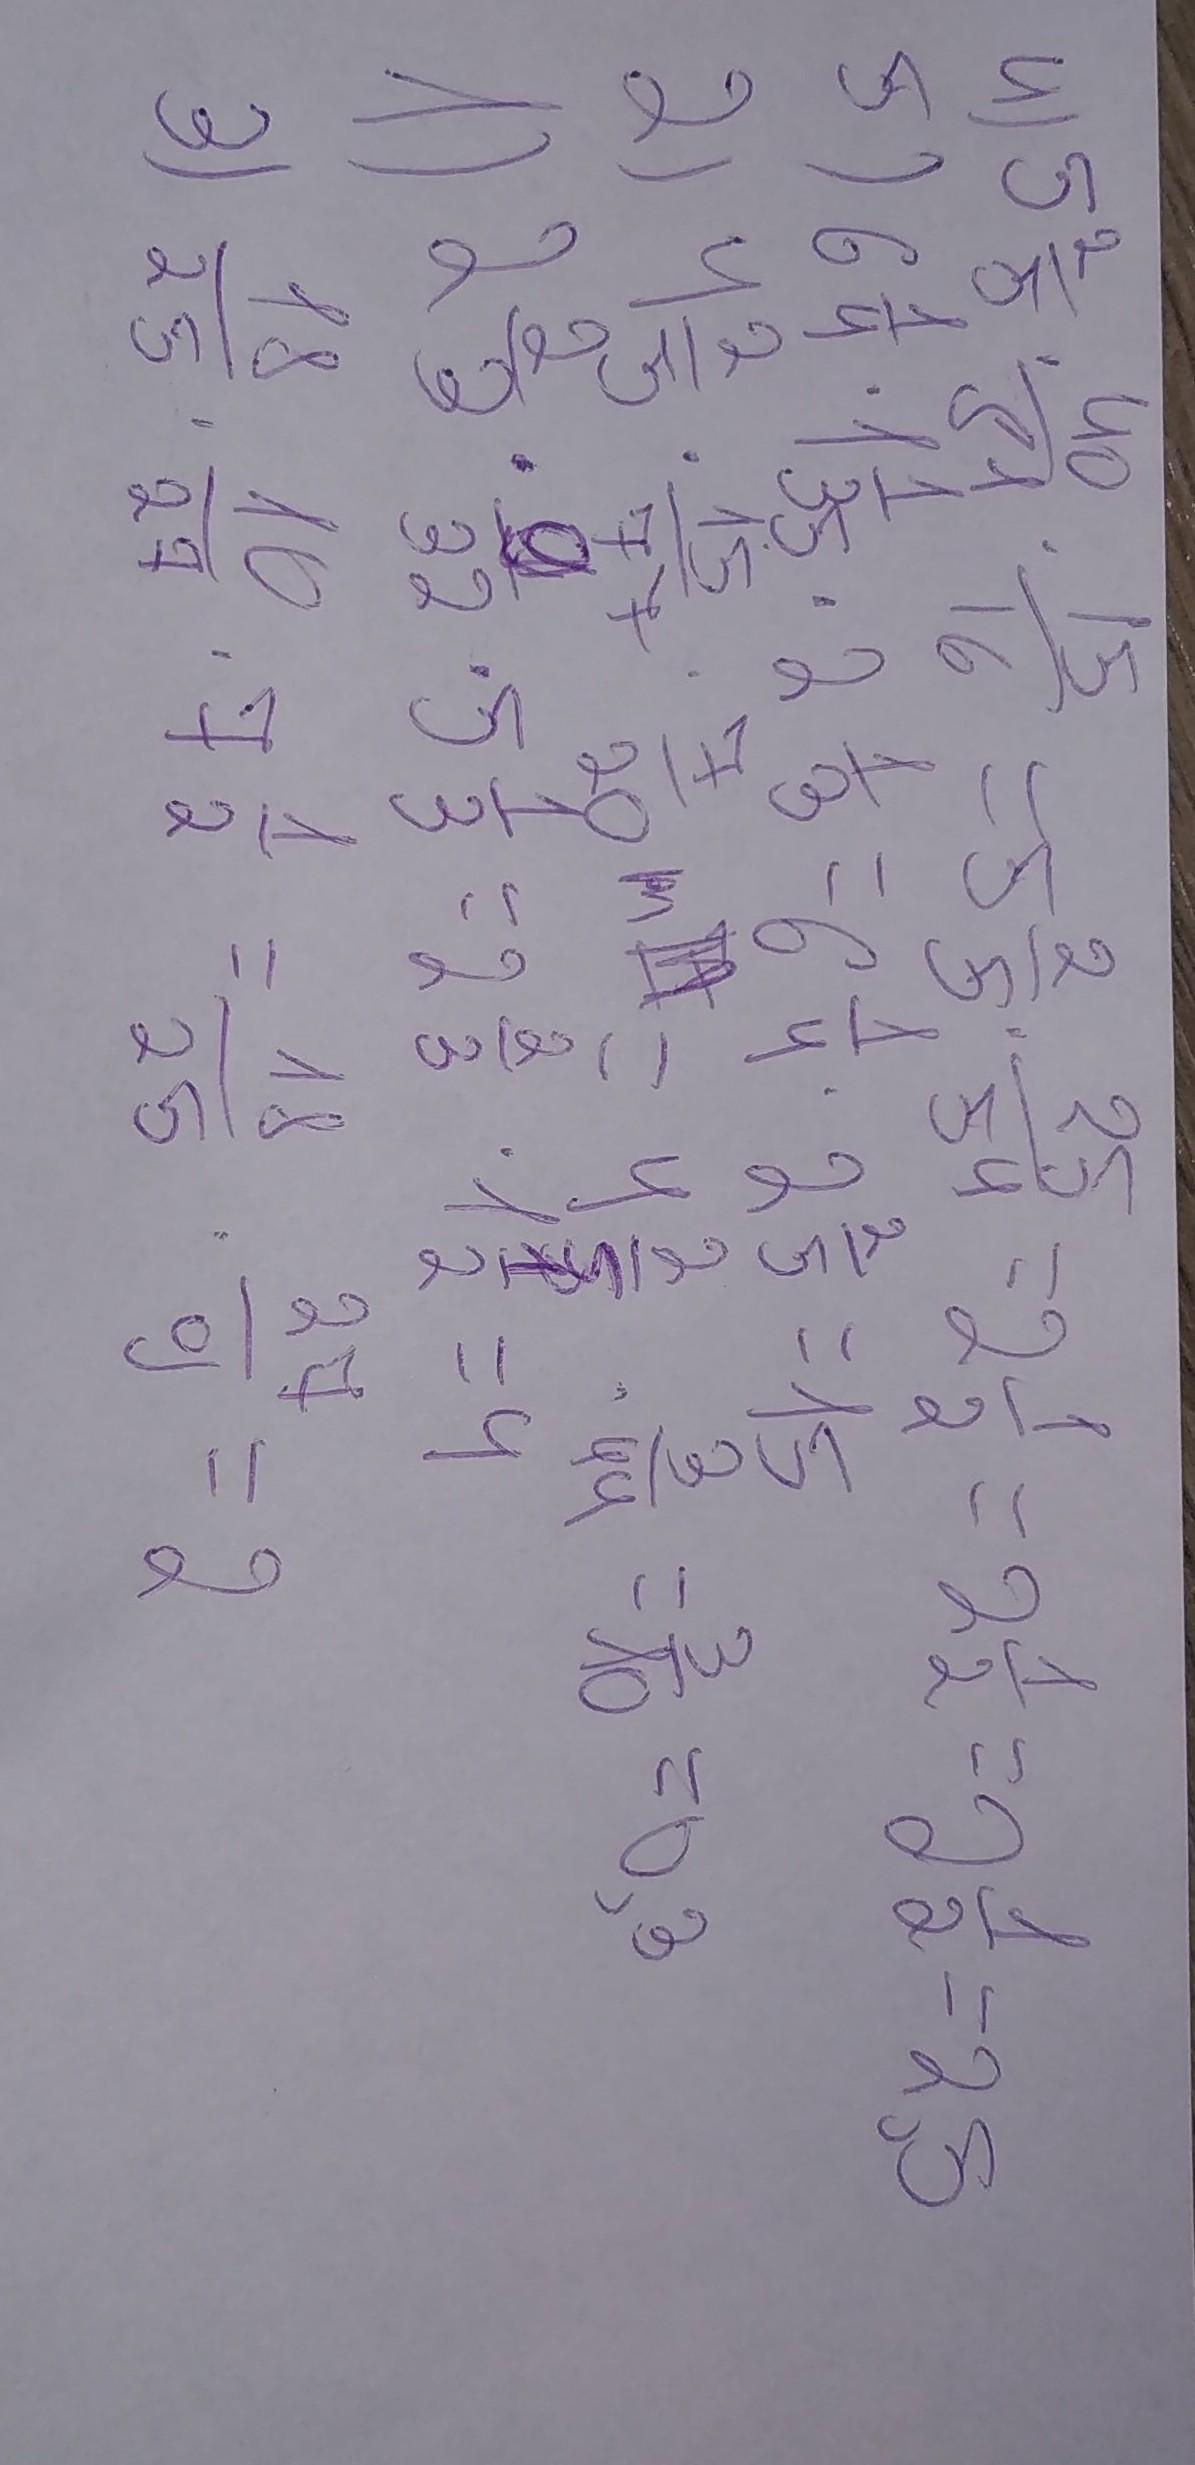 4) 5 2/5 · 40/81 · 15/16 = 5 2/5 · 25/54 = 2 1/2 = 2 1/2 = 2 1/2 = 2,5
5) 6 1/4 · 1 1/35 · 2 1/3 = 6 1/4 · 2 2/5 = 15
2) 4 2/5 · 15/77 · 7/20 = 4 2/5 · 3/44 = 3/10 = 0,3
1) 2 2/3 · 9/32 · 5 1/3 = 2 2/3 · 1 1/2 = 4
3) 18/25 · 10/27 · 7 1/2 = 18/25 · 27/9 = 2